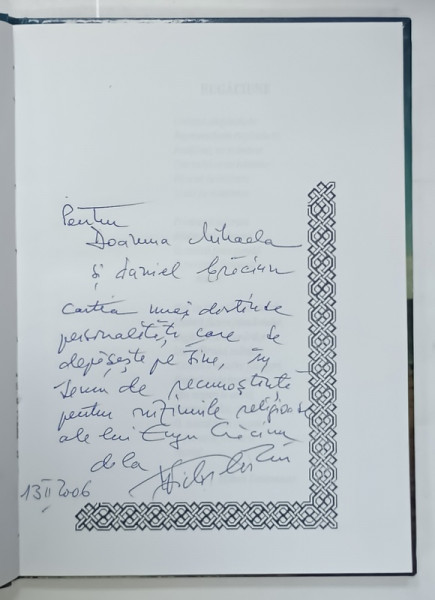 Pentru
Doamna Mihaela
și Daniel Crăciun
cartea unei distinse
personalități care se
depășește pe sine, în
semn de recunoștință
pentru viziunile religioase
ale lui Eugen Crăciun
de la
13 II 2006